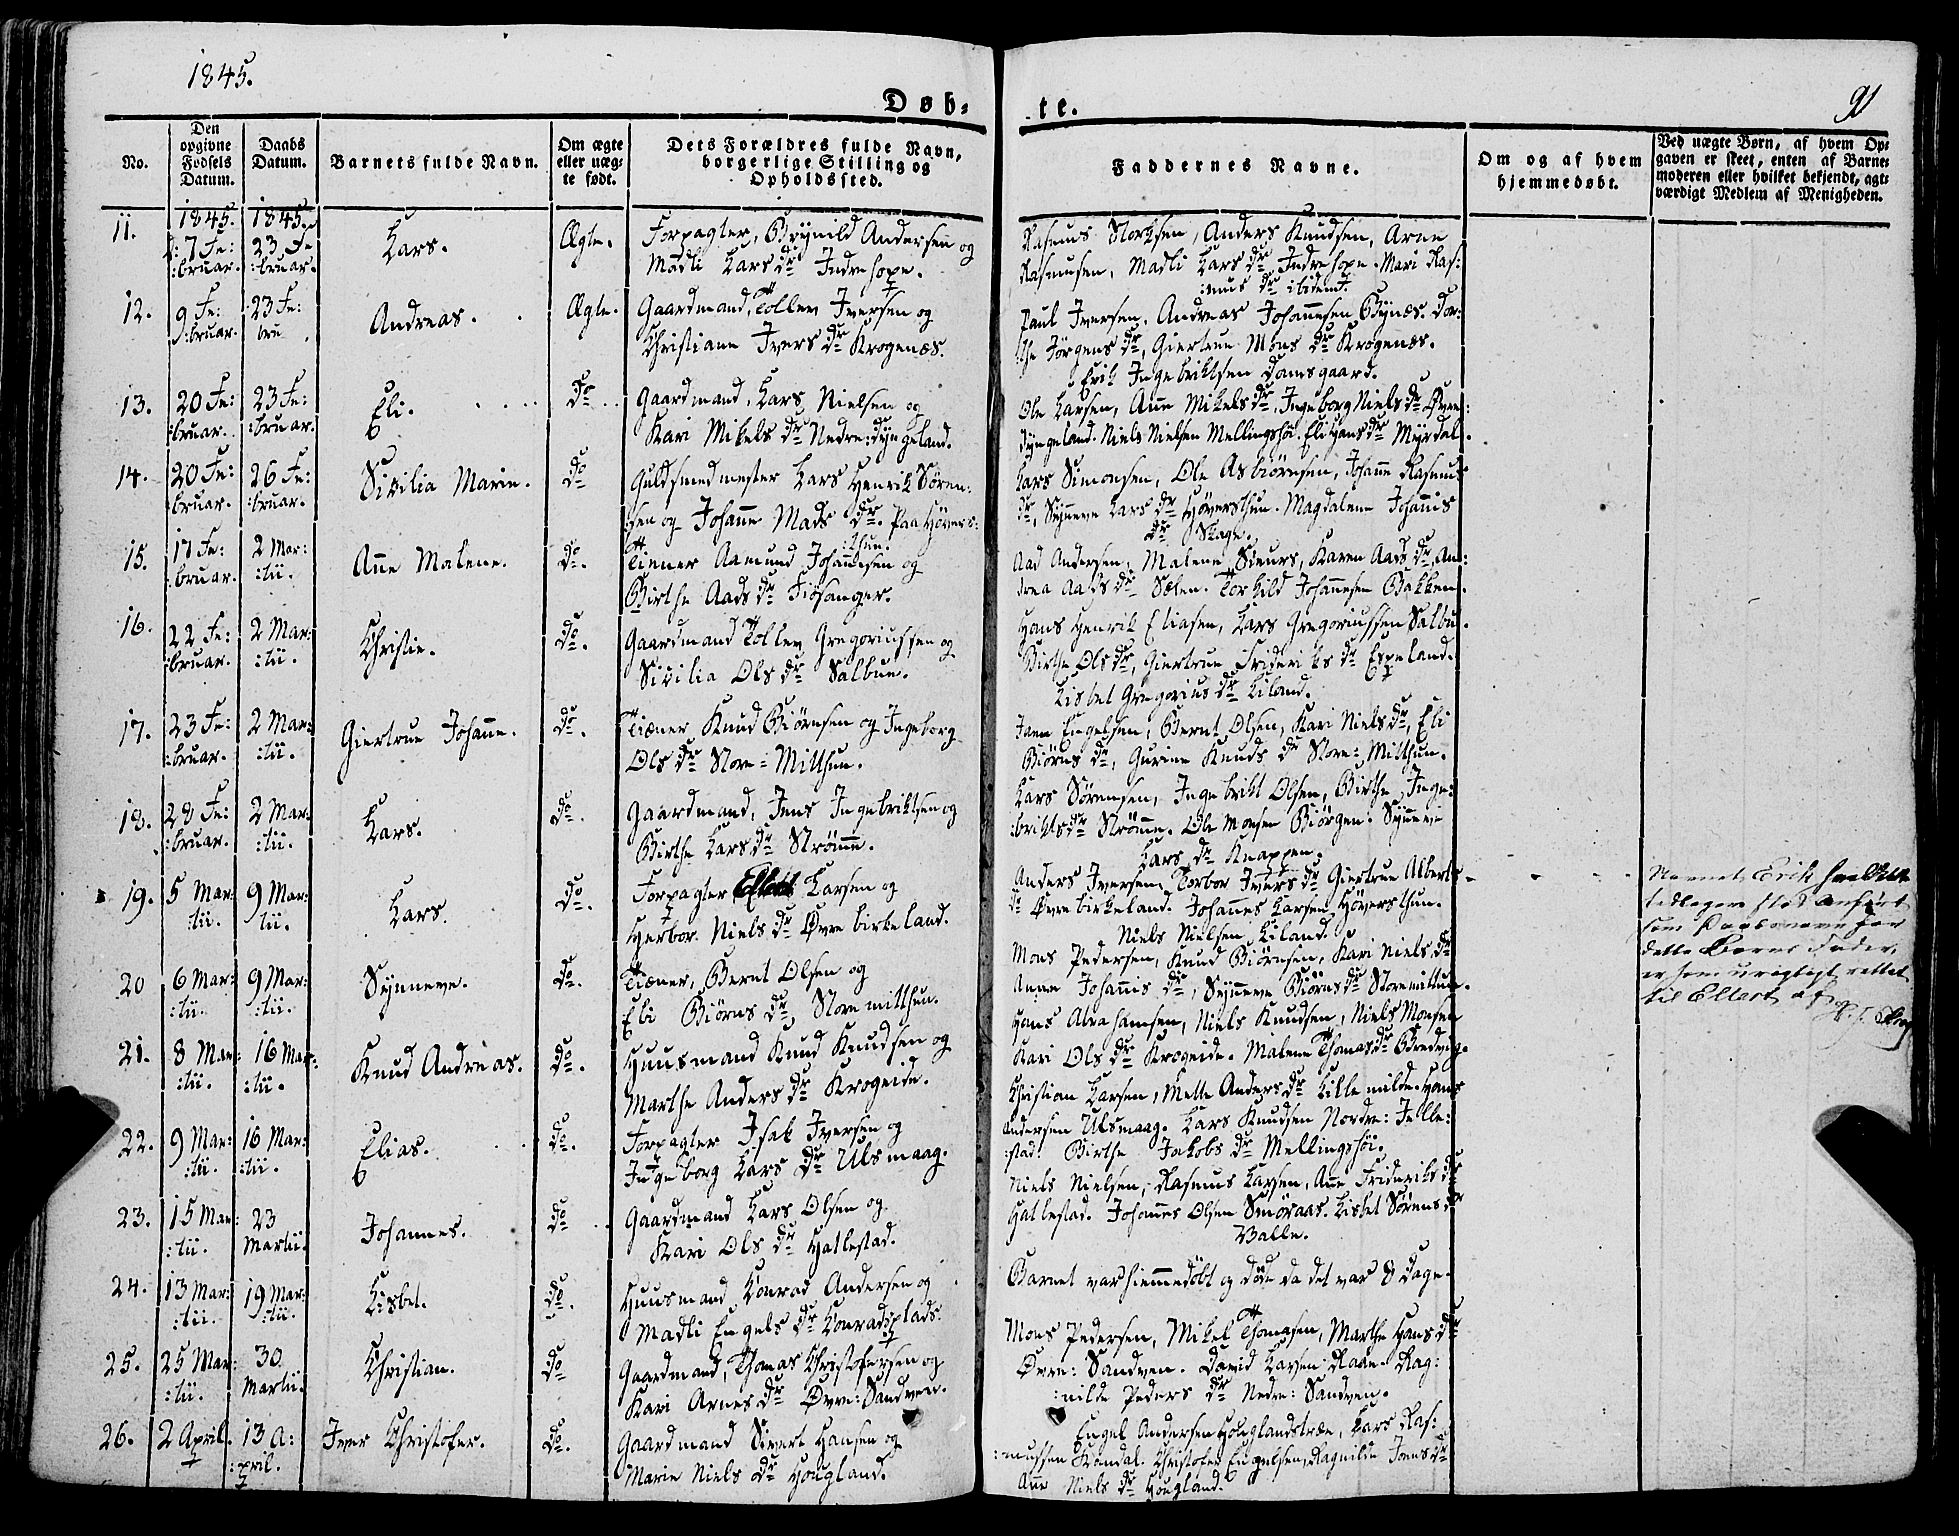 1845.
Døb-
te.
91
No.
Den opgivne Fødsels Datum.
Daabs Datum.
Barnets fulde Navn.
Om ægte eller uægte født.
Dets Forældres fulde Navn, borgerlige Stilling og Opholdssted.
Faddernes Navne.
Om og af hvem hjemmedøbt.
Ved uægte Børn, af hvem Opgaven er skeet, enten af Barnemoderen eller hvilket bekjendt, agtværdigt Medlem af Menigheden.
11. 1845. 7 Fe:bruar. 1845. 23 Fe:bruar. Lars. Ægte.
Forpagter, Brynild Andersen og
Madli Lars dr Indrehope.
Rasmus Storksen, Anders Knudsen, Arne
Rasmusen, Madli Lars dr Indrehope. Mari Ras:
:mus dr ibidem.
12. 9 Fe:bruar. 23 Fe:bru Andreas. Ægte.
Gaardmand, Tollev Iversen og
Christiane Ivers dr Krogenæs.
Paul Iversen, Andreas Johannesen Bynæs. Dor:
:the Jørgens dr, Giertrue Mons dr Krogenæs.
Erik Ingebriktsen Damsgaard.
13. 20 Fe:bruar. 23 Fe:bruar. Eli. Do
Gaardmand, Lars Nielsen og
Kari Mikels dr Nedre: dyngeland.
Ole Larsen, Anne Mikels dr, Ingeborg Niels dr Øvre:
dyngeland. Niels Nielsen Mellingshöi. Eli Hans dr Myrdal.
14. 20 Fe:bruar. 26 Fe:bruar. Sivilia Marie. Do
Guldsmedmester Lars Henrik Sören:
:sen og Johanne Mads dr. paa Hövers:
:thun.
Lars Simonsen, Ole Asbiörnsen, Johanne Rasmus
dr, Synneve Lars dr Höversthun. Magdalene Johannis
dr Skage.
15. 17 Fe:bruar. 2 Mar:tii. Anne Malene. Do.
Tiener Aamund Johannesen og
Birthe Aads dr Fiösanger.
Aad Andersen, Malene Sieurs, Karen Aads dr, An:
drea Aads dr Sælen. Torkild Johannesen Bakken.
16. 22 Fe:bruar. 2 Mar:tii. Christie. Do.
Gaardmand Tollev Gregoriussen og
Sivilia Ols dr Salbue.
Hans Henrik Eliasen, Lars Gregoriussen Salbu.
Birthe Ols dr, Giertrue Frideriks dr Espeland.
Lisbet Gregorius dr Liland.
17. 23 Fe:bruar. 2 Mar:tii. Giertrue Johanne. Do.
Tiener Knud Biörnsen og Ingeborg
Ols dr Store=Milthun.
Jann Engelsen, Bernt Olsen, Kari Niels dr, Eli
Biörns dr, Gurine Knuds dr Store: Milthun.
18. 28 Fe:bruar. 2 Mar:tii. Lars. Do.
Gaardmand, Jens Ingebriktsen og
Birthe Lars dr Strömme.
Lars Sörensen, Ingebrikt Olsen, Birthe Inge:
:brikts dr Strömme. Ole Monsen Biörgen. Synneve
Lars dr Knappen.
19. 5 Mar:tii. 9 Mar:tii. Lars. Do.
Forpagter Ellert Larsen og
Herbor Niels dr Øvre birkeland.
Anders Iversen, Torbor Ivers dr Giertrue Alberts
dr Øvre birkeland. Johannes Larsen Höversthun.
Niels Nielsen Liland.
Navnet Erik
tidligere sted anfört
som Daabsnavn for
dette Barns Fader,
er som urigtigt rettet
til Ellert af
20 6 Mar:tii. 9 Mar:tii. Synneve. Do.
Tiener, Bernt Olsen og
Eli Biörns dr, Store milthun.
Mons Pedersen, Knud Biörnsen, Kari Niels dr
Anne Johannis dr, Synneve Biörns dr Storemilthun.
21. 8 Mar:tii. 16 Mar:tii. Knud Andreas. Do.
Huusmand Knud Knudsen og
Marthe Anders dr Krogeide.
Hans Abrahamsen, Niels Knudsen, Niels Monsen
Kari Ols dr Krogeide. Malene Thomas dr Bredvig.
22. 9 Mar:tii. 16 Mar:tii. Elias. Do.
Forpagter Isak Iversen og
Ingeborg Lars dr Ulsmaag.
Christian Larsen, Mette Anders dr Lille milde. Hans
Andersen Ulsmaag. Lars Knudsen Nordre: Jelle:
:stad. Birthe Jakobs dr Mellingshöi.
23. 15 Mar:tii. 23 Martii. Johannes. Do
Gaardmand Lars Olsen og
Kari Ols dr Hatlestad.
Niels Nielsen, Rasmus Larsen, Anne Frideriks dr
Hatlestad. Johannes Olsen Smöraas. Lisbet Sörens dr
Valle.
24. 13 Mar:tii. 19 Mar:tii. Lisbet. Do.
Huusmand Konrad Andersen og
Madli Engels dr Konradsplads.
Barnet var hiemmedöbt og döde da det var 8 Dage.
25. 25 Mar:tii. 30 Martii. Christian. Do
Gaardmand, Thomas Christofersen og
Kari Arnes dr Øvre: Sandven.
Mons Pedersen, Mikel Thomasen, Marthe Hans dr
Øvre: Sandven. David Larsen Raae. Rag:
:nilde Peders dr Nedre: Sandven.
26. 2 April. 13 A:pril. Iver Christofer. Do.
Gaardmand Sivert Hansen og
Marie Niels dr Hougland.
Engel Andersen Houglandstræe, Lars Ras:
:mussen Röndal. Christofer Engelsen, Ragnilde Jens dr
Anne Niels dr Hougland.